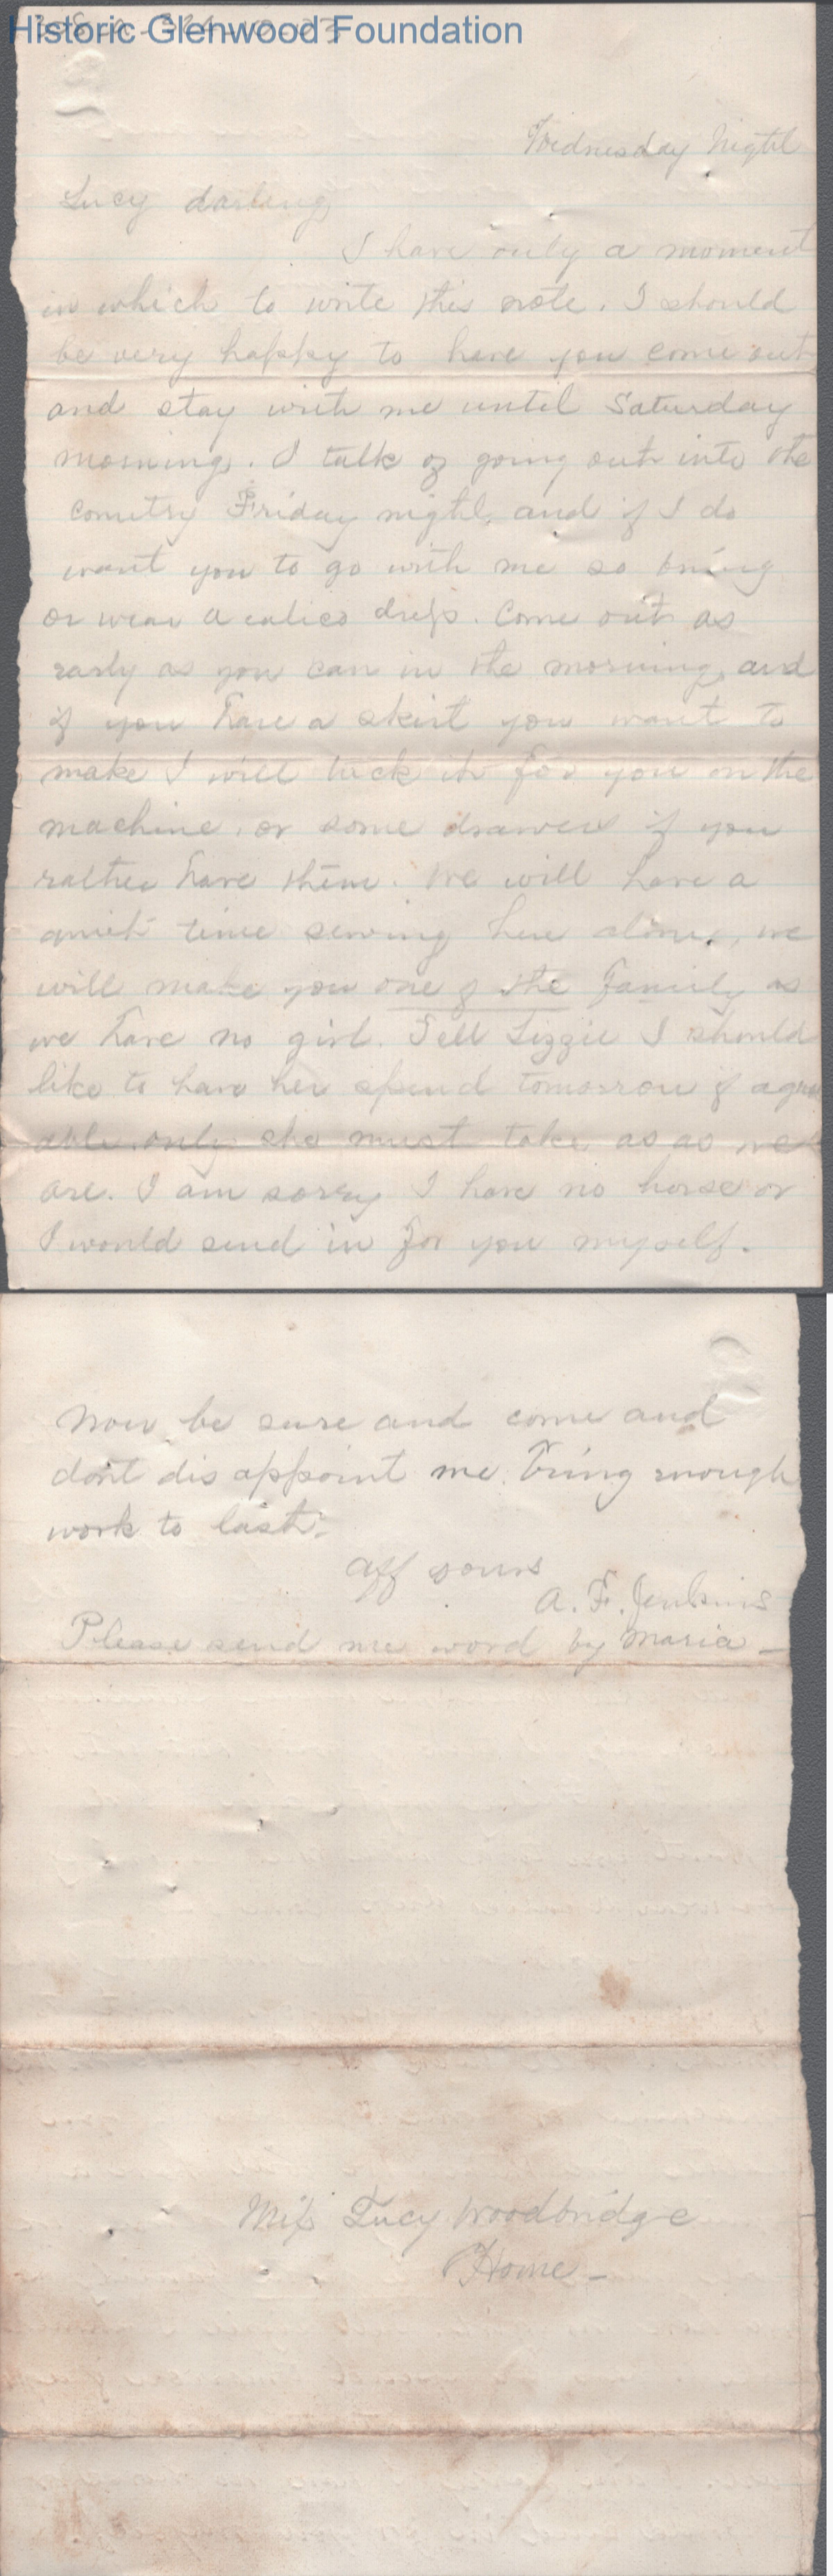 Historic Glenwood Foundation
Wednesday Night
Lucy darling
I have only a moment
in which to write this note. I should
be very happy to have you come out
and stay with me until Saturday
morning. I talk of going out into the
country Friday night, and if I do
want you to go with me so bring
or wear a calico dress. Come out as
early as you can in the morning, and
if you have a skirt you want to
make I will tuck it for you on the
machine, or some drawers if you
rather have them. We will have a
quiet time sewing here alone, we
will make you one of the family as
we have no girl. Tell Lizzie I should
like to have her spend tomorrow if agree
able, only she must take as as we
are. I am sorry I have no horse or
I would send in for you myself.
Now be sure and come and
dont dis appoint me. Bring enough
work to last.
Aff yours
A. F. Jenkins
Please send me word by Maria -
Miss Lucy Woodbridge
Home -